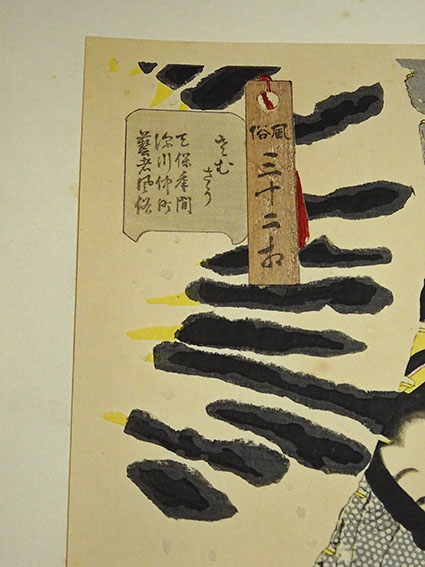 風俗三十二相
さむさう
天保年間
深川仲町
藝者風俗